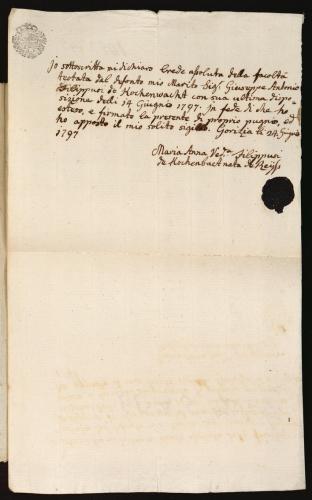 Io sottoscritta mi dichiaro Erede assoluta della facoltà
testata dal defonto mio Marito Sigr. Giuseppe Antonio
Filippusi de Hochenwacht con sua ultima dispo-
sizione delli 14 Giugnio 1797. In fede di che ho
esteso, e firmato la presente di proprio pugnio, ed
ho apposto il mio solito sigillo. Gorizia li 24 Giugnio
1797
Maria Anna Veda. Filippusi
de Hochenbact nata de